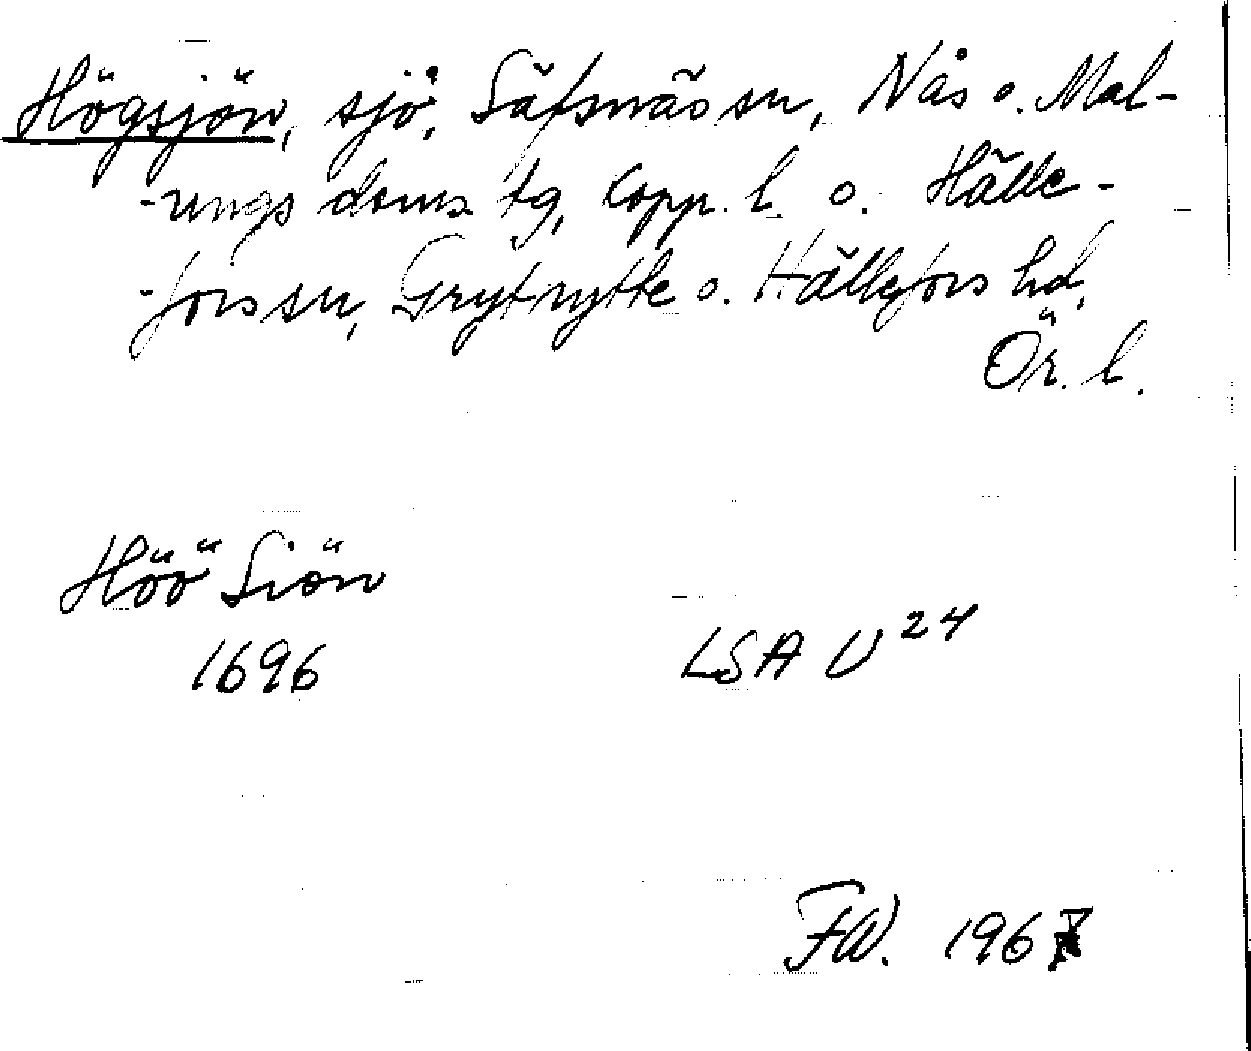 Högsjön, sjö, Säfsnäs sn, Nås o. Mal-
-ungs doms tg, Kopp. l. o. Hälle-
-fors sn, Grythytte o. Hällefors hd,
Ör. l.
Höö Siön
1696
LSA U 24
FW. 1967